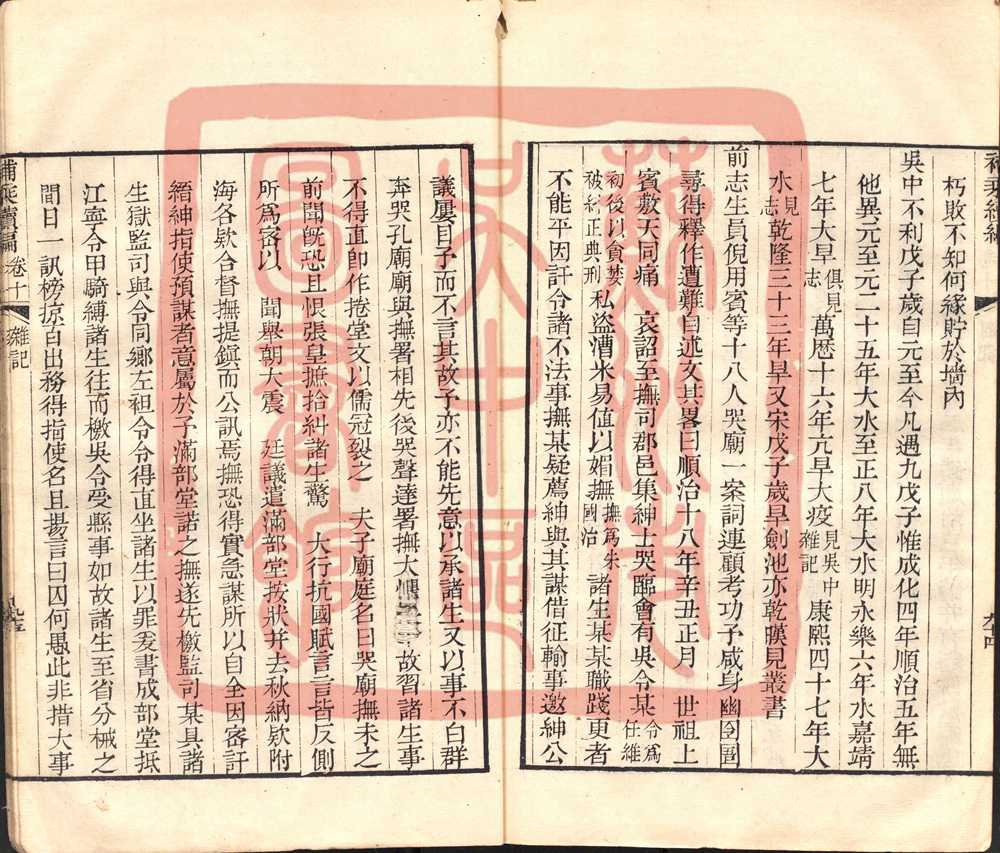 朽敗不知何緣貯於墻內
吳中不利戊子歲自元至今凡遇九戊子惟成化四年順治五年無
他異元至元二十五年大水至正八年大水明永樂六年水嘉靖
七年大旱俱見志萬歷十六年亢旱大疫見吳中雜記康熙四十七年大
水見志乾隆三十三年旱又宋戊子歲旱劍池亦乾暵見叢書
前志生員倪用賓等十八人哭廟一案詞連顧考功予咸身幽囹圄
尋得釋作遭難自述文其畧曰順治十八年辛丑正月 世祖上
賓敷天同痛 哀詔至撫司郡邑集紳士哭臨會有吳令某令為任維
初後以貪婪被糾正典刑私盜漕米易值以媚撫撫爲朱國治諸生某某職踐更者
不能平因訐令諸不法事撫某疑薦紳與其謀借征輸事邀紳公
議屢目予而不言其故予亦不能先意以承諸生又以事不白群
奔哭孔廟廟與撫署相先後哭聲達署撫大懼故習諸生事
不得直卽作捲堂文以儒冠裂之 夫子廟庭名曰哭廟撫未之
前聞旣恐且恨張皇摭拾糾諸生驚 大行抗國賦言言皆反側
所爲密以 聞舉朝大震 廷議遣滿部堂按狀并去秋納欵附
海各欵合督撫提鎮而公訊焉撫恐得實急謀所以自全因密訐
縉紳指使預謀者意屬於予滿部堂諾之撫遂先檄監司某具諸
生獄監司與令同鄉左袒令令得直坐諸生以罪爰書成部堂抵
江寧令甲騎縛諸生往而檄吳令受縣事如故諸生至省分械之
間日一訊榜掠百出務得指使名且揚言曰囚何愚此非措大事
卷十
雜記